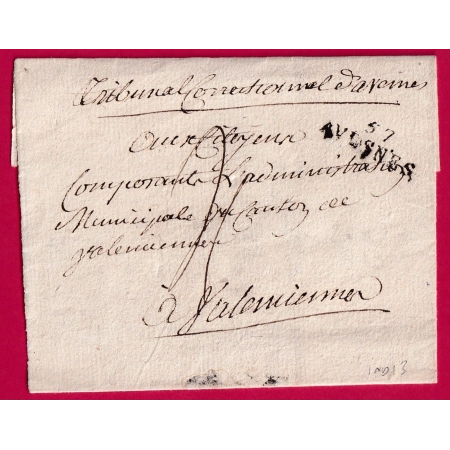 Tribunal Correctionnel d'avesnes
57
AVESNES
aux Citoyens
Composants L'administration
Municipale du Canton de
Valenciennes
à Valenciennes
IND 13